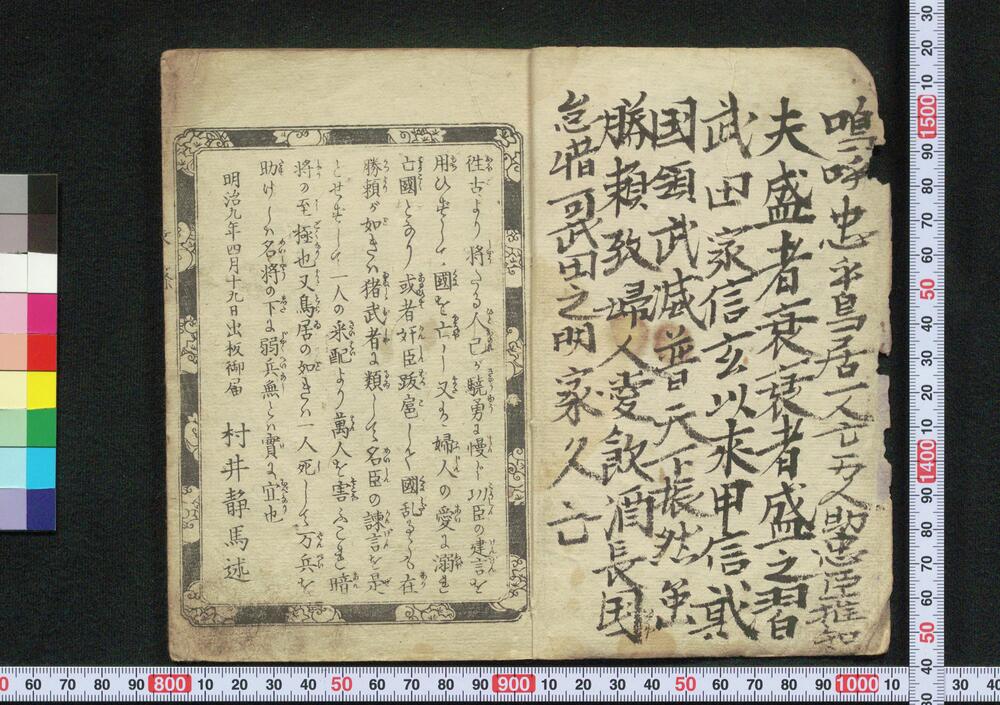 嗚呼忠乎鳥居一人亡百人助忠臣推知
夫盛者衰衰者盛之習
武田家信玄以来甲信貳
国領武威普天下振然虽
勝頼致婦人愛飲酒長国
怠惜可武田之明家久亡
往古より将たる人己が驍勇に慢じ臣の建言を
用ひずして國を亡し又は婦人の愛に溺れ
亡國となり或者奸臣跋扈して國乱るゝも在
勝頼が如きハ猪武者に類して名臣の諫言を是
とせずして一人の采配より萬人を害ふこと暗
将の至極也又鳥居の如きハ一人死して万兵を
助けしハ名将の下に弱兵無しとハ實に宜也
明治九年四月十九日出板御届 村井静馬述